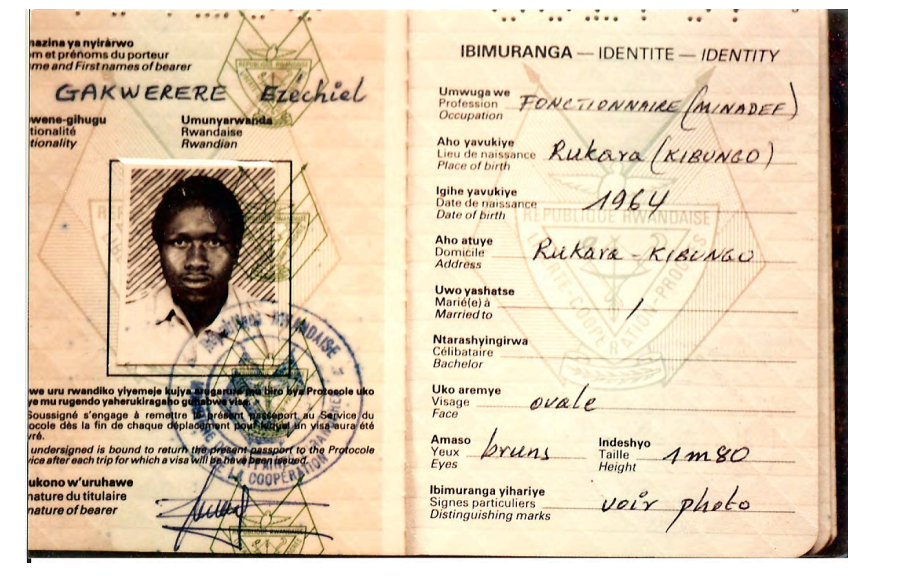 mazina ya nyirarwo
m et prénoms du porteur
me and First names of bearer
GAKWERERE Ezéchiel
wene-gihugu
tionalité
tionality
Umunyarwanda
Rwandaise
Rwandian
REPUBLIQUE RWANDAISE
LA COOPERATION
we uru rwandiko yiyemeje kujya arugarura mu biro bya Protocole uko
ye mu rugendo yaherukiragaho guhabwa visa.
Soussigné s'engage à remettre le présent passeport au Service du
ocole dès la fin de chaque déplacement pour lequel un visa aura été
vré.
undersigned is bound to return the present passport to the Protocole
vice after each trip for which a visa will be have been issued.
ukono w'uruhawe
nature du titulaire
nature of bearer
IBIMURANGA — IDENTITE — IDENTITY
Umwuga we
Profession FONCTIONNAIRE (MINADEF)
Occupation
Aho yavukiye
Lieu de naissance Rukara (KIBUNGO)
Place of birth
Igihe yavukiye
Date de naissance 1964
Date of birth
REPUBLIQUE RWANDAISE
LIBERTE-COOPERATION-PROGRES
Aho atuye
Domicile Rukara - KIBUNGO
Address
Uwo yashatse
Marié(e) à /
Married to
Ntarashyingirwa
Célibataire
Bachelor
Uko aremye
Visage ovale
Face
Amaso
Yeux bruns
Eyes
Indeshyo
Taille 1m80
Height
Ibimuranga yihariye
Signes particuliers voir photo
Distinguishing marks